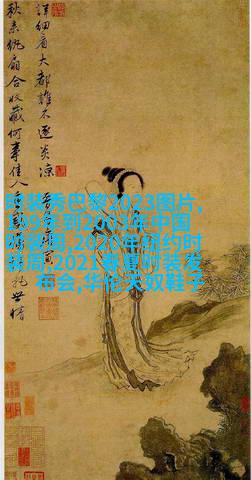 秋来紈扇合收藏何事佳人
世情
詳細看大都誰不逐炎凉
时装秀巴黎2023图片,
199年到2003年中国
时装周,2020年纽约时
装周,2021春夏时装发
布会,华伦天奴鞋子